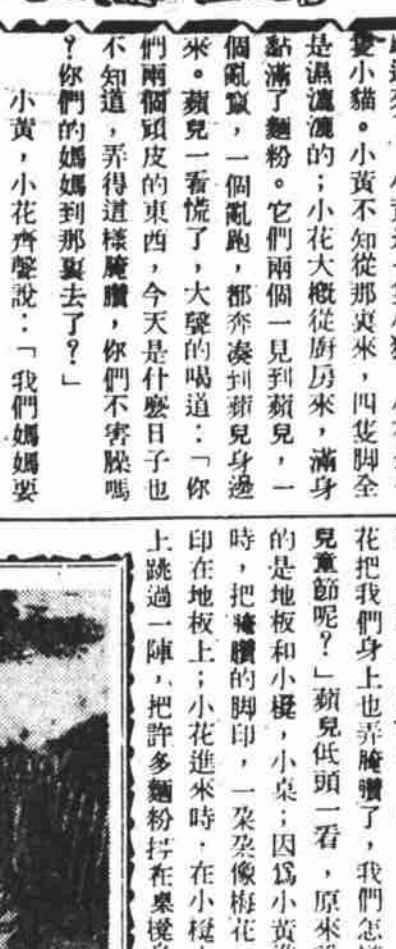 隻小貓。小黃不知從那裏來，四隻脚全
是濕漉漉的；小花大概從廚房來，滿身
黏滿了麵粉。它們兩個一見到蘋兒，一
個亂竄，一個亂跑，都奔湊到蘋兒身邊
來。蘋兒一看慌了，大聲的喝道：「你
們兩個頑皮的東西，今天是什麼日子也
不知道，弄得這樣腌臢，你們不害臊嗎
？你們的媽媽到那裏去了？」
小黃，小花齊聲說：「我們媽媽要
花把我們身上也弄腌臢了，我們怎
兒童節呢？」蘋兒低頭一看，原來
的是地板和小櫈，小桌；因爲小黃
時，把腌臢的脚印，一朵朵像梅花
印在地板上；小花進來時，在小櫈
上跳過一陣，把許多麵粉抖在桌櫈